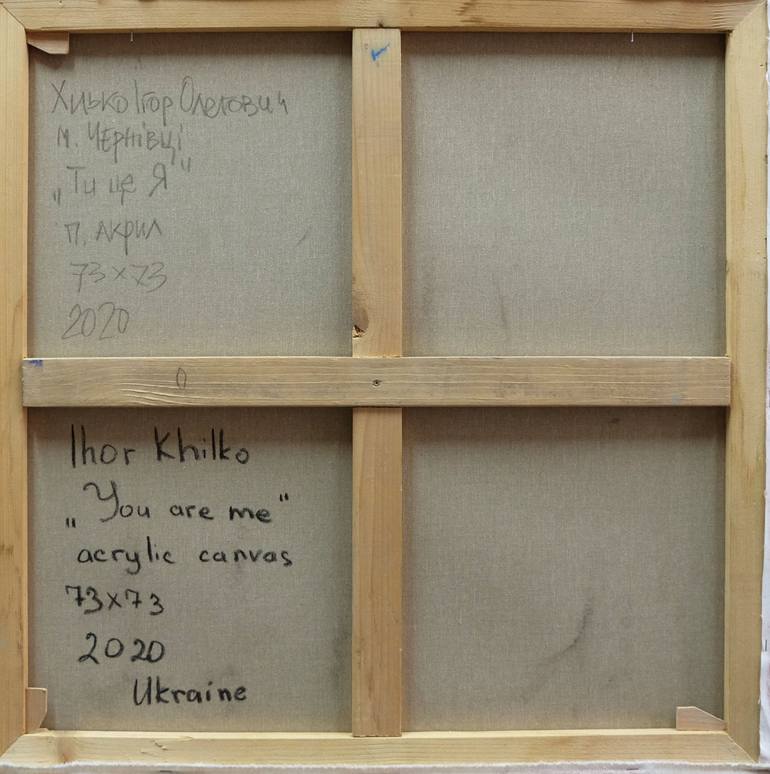 Хилько Ігор Олегович
м. Чернівці
„Ти це Я"
п. акрил
73×73
2020
Ihor Khilko
„You are me"
acrylic canvas
73x73
2020
Ukraine